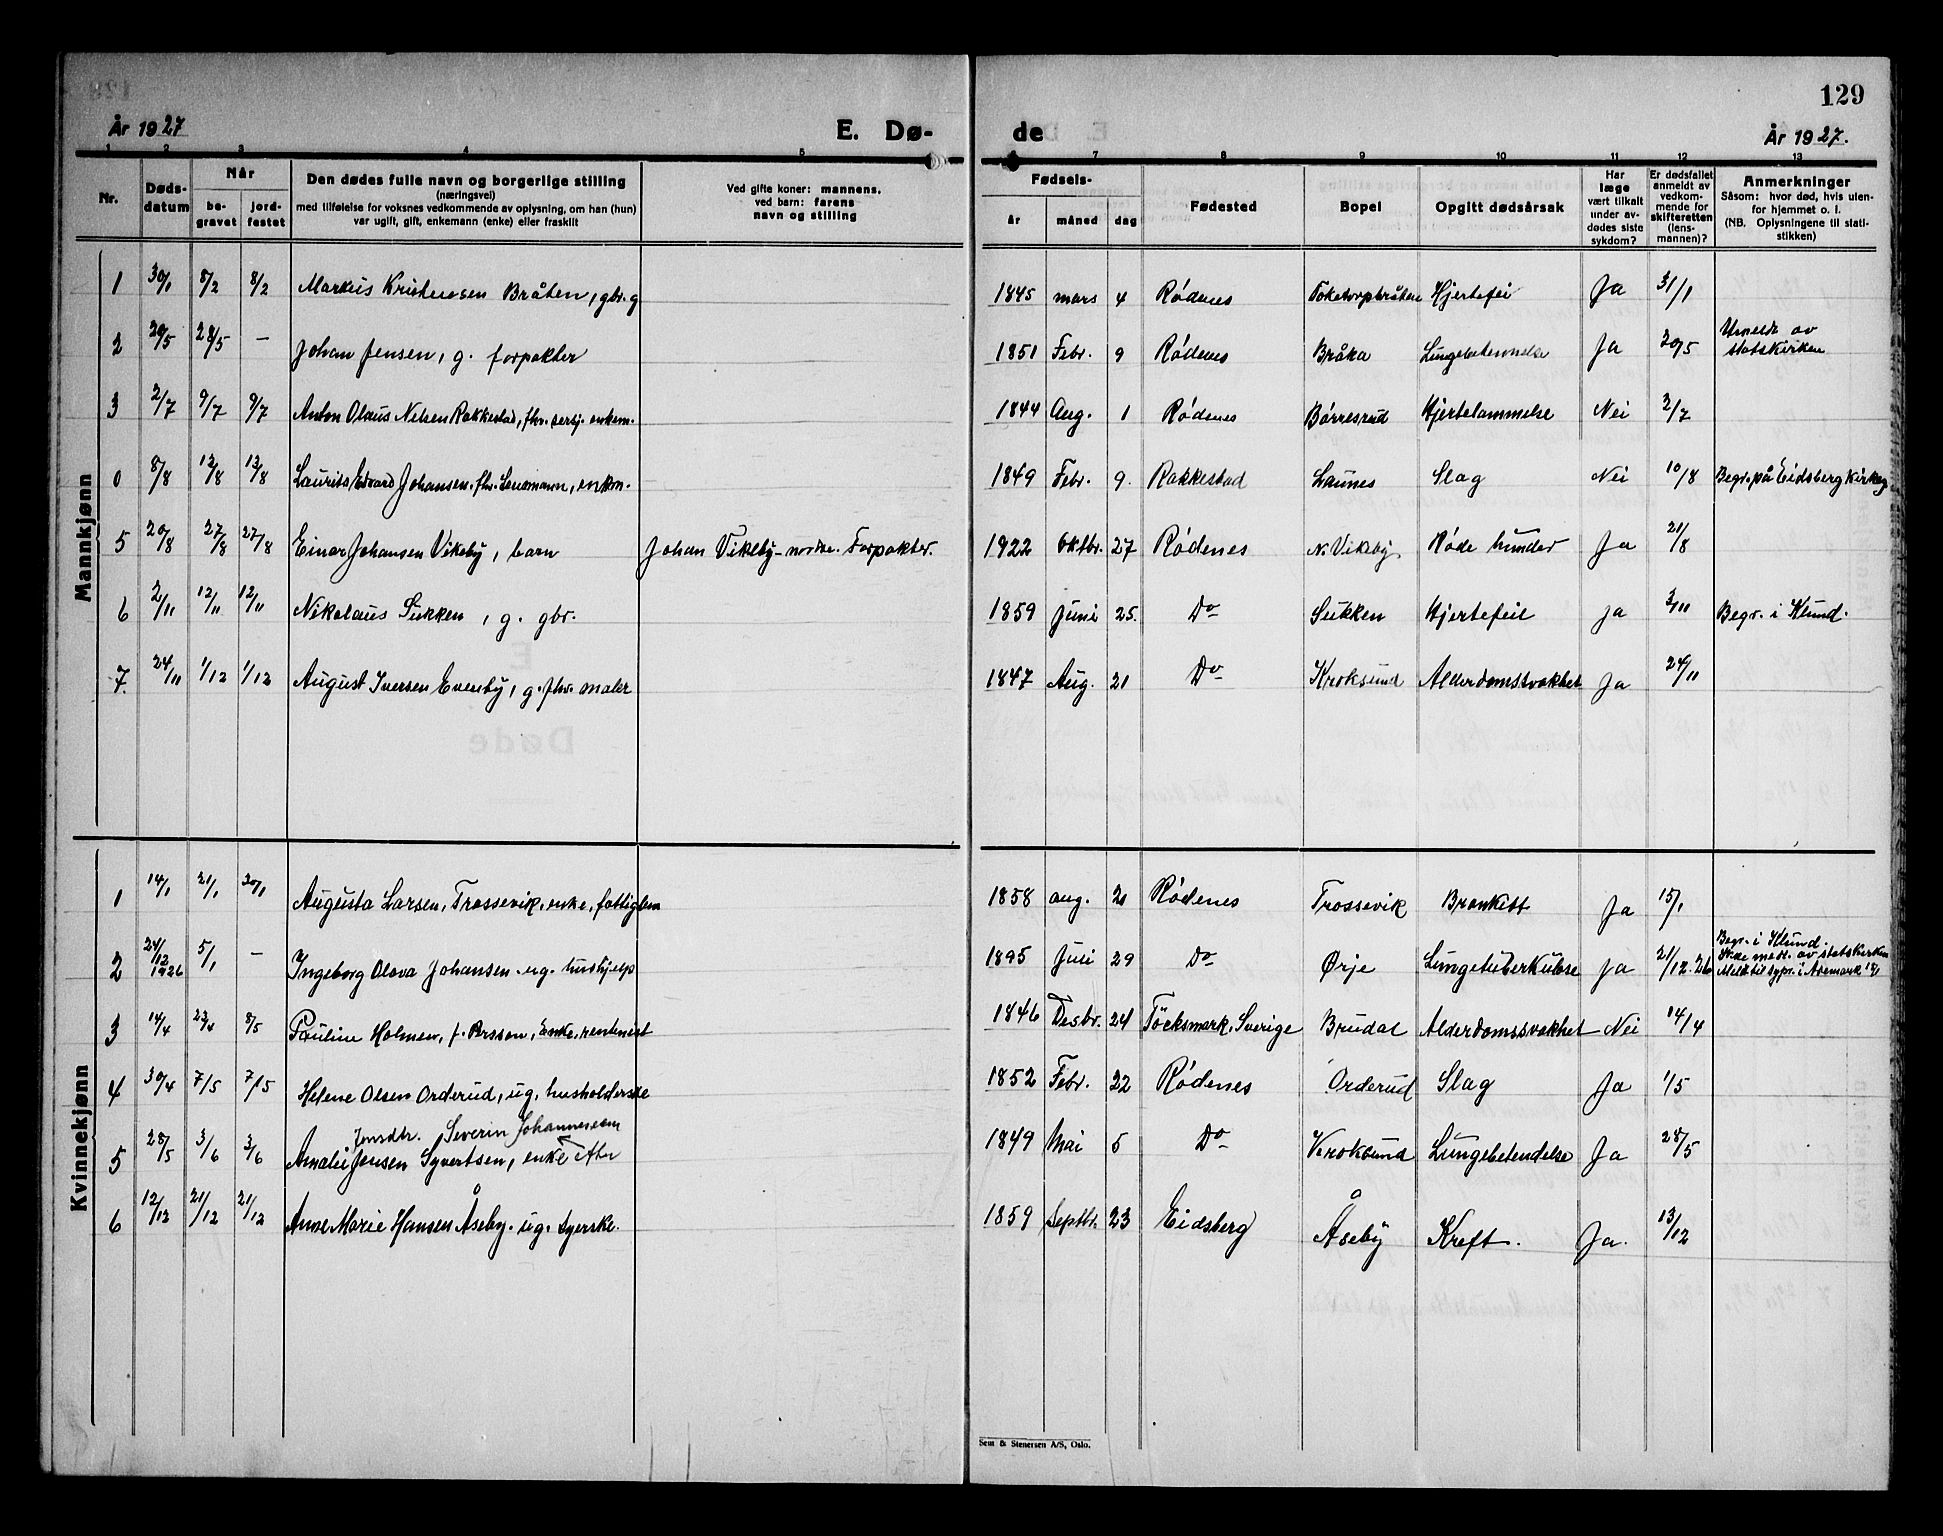 129
År 1927
E. Dø-
de
År 1927.
1 2 3 4 5
7 8 9 10 11 12 13
Nr.
Døds-
datum
Når
be-
gravet
jord-
festet
Den dødes fulle navn og borgerlige stilling
(næringsvei)
med tilføielse for voksnes vedkommende av oplysning, om han (hun)
var ugift, gift, enkemann (enke) eller fraskilt
Ved gifte koner: mannens.
ved barn: farens
navn og stilling
Fødsels-
år måned dag
Fødested
Bopel
Opgitt dødsårsak
Har
læge
vært tilkalt
under av-
dødes siste
sykdom?
Er dødsfallet
anmeldt av
vedkom-
mende for
skifteretten
(lens-
mannen)?
Anmerkninger
Såsom: hvor død, hvis uten-
for hjemmet o. l.
(NB. Oplysningene til stati-
stikken)
Mannkjønn
1 30/1 8/2 8/2 Markus Kristensen Bråten, gbr. g 1845 mars 4 Rødenes Toketorpbråten Hjertefei Ja 31/1
2 20/5 28/5 — Johan Jensen, g. forpakter 1851 Febr. 9 Rødenes Bråka Lungebetennelse Ja 20/5 Utmeldt av
statskirken
3 2/7 9/7 9/7 Anton Olaus Nilsen Rakkestad, fhv. sersj. enkem. 1844 Aug. 1 Rødenes Børresrud Hjertelammelse Nei 2/7
0 8/8 13/8 13/8 Laurits Edvard Johansen. fhv. Lensmann, enkm. 1849 Febr. 9. Rakkestad Launes Slag Nei 10/8 Begr. på Eidsberg Kirkeg
5 20/8 27/8 27/8 Einar Johansen Vikeby, barn Johan Vikeby - nordre. Forpakter. 1922 Oktbr. 27 Rødenes N. Vikeby Røde hunder Ja 21/8
6 2/11 12/11 12/11 Nikolaus Sukken, g. gbr. 1859 Juni 25. Do Sukken Hjertefeil ja 3/11 Begr. i Klund.
7. 24/11 1/12 1/12 August Iversen Evenby, g. fhv. maler 1847 Aug. 21 Do Kroksund Alderdomssvakhet Ja 24/11
Kvinnekjønn
1 14/1 21/1 20/1 Augusta Larsen, Trossevik, enke, fattiglem 1858 aug. 2 Rødenes Trossevik Bronkitt Ja 15/1
2 24/12 1926 5/1 — Ingeborg Olava Johansen. ug. hushjelp 1895 Juli 29 Do Ørje Lungetuberkulose ja 21/12.26 Begr. i Klund.
Ikke medl. av statskirken
Meldt til sypr. i Aremark 19/1
3 14/4 23/4 8/5 Pauline Holmen, f. Persson, Enke, rentenist 1846 Desbr. 24 Töcksmark, Sverige Brudal Alderdomssvakhet Nei 14/4
4 30/4 7/5 7/5 Helene Olsen Orderud, ug. husholderske 1852 Febr. 22 Rødenes Orderud Slag Ja 1/5
Jensdtr. Severin Johannessen
5 28/5 3/6 3/6 Amalie Jensen Syvertsen, enke etter 1849 Mai 5 Do Kroksund Lungebetendelse Ja 28/5
6 12/12 21/12 21/12 Anne Marie Hansen Åseby. ug. syerske. 1859 Septbr. 23 Eidsberg Åseby Kreft. Ja. 13/12
Sem & Stenersen A/S, Oslo.